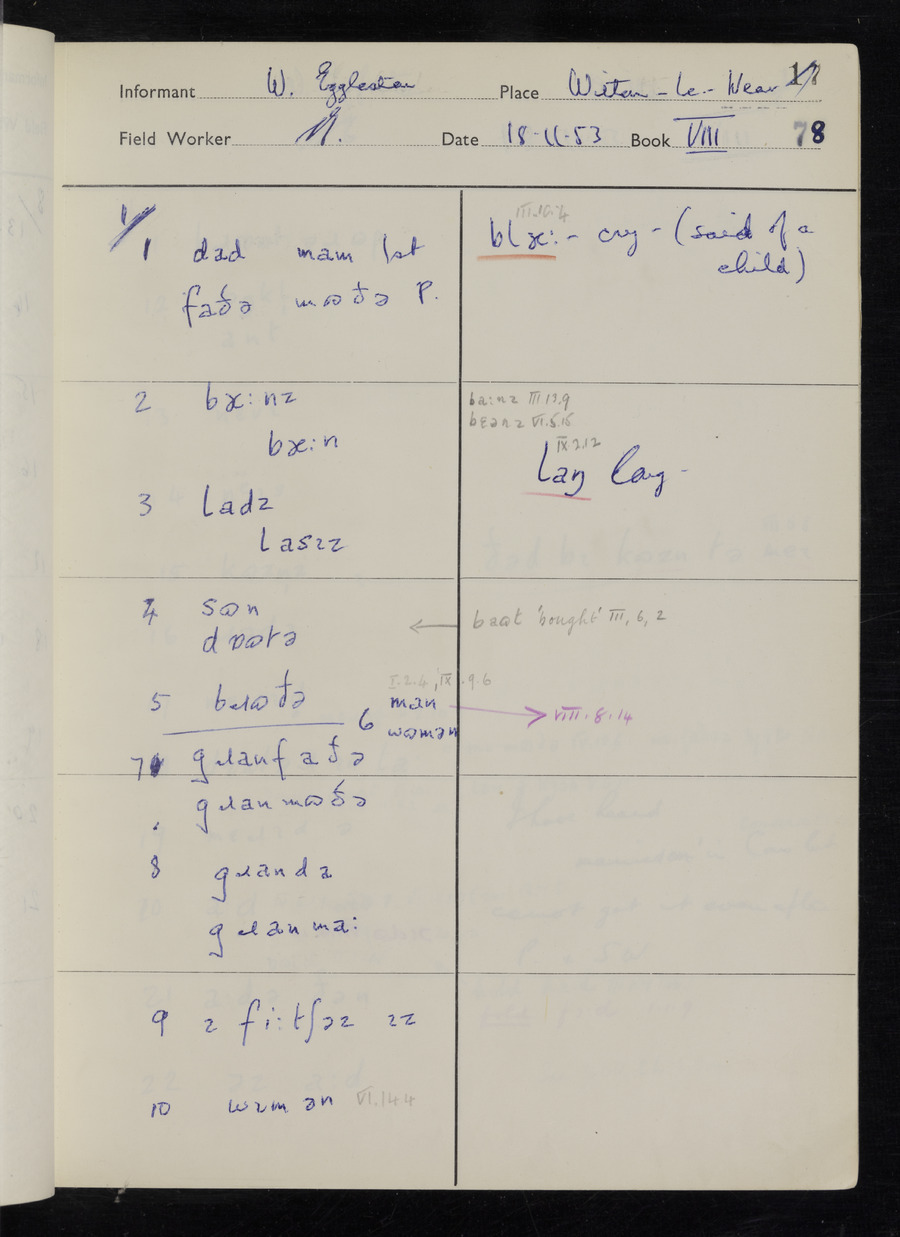 Informant W. Eggleston Place Witton-le-Wear
Field Worker Date 18-11-53 Book VIII 78
1/
1 dad mam 1st
faðə mɷðə P.
III.10.4
blɛ:- cry - (said of a
child)
2 bɛ:nz
bɛ:n
ba:nz III 13.9
bɛənz VI.5.15
IX.2.12
laŋ long -
3 ladz
lasɪz
4 sɷn
dɔɷtə
← bɔɷt 'bought' III, 6, 2
5 bɹɷðə
I.2.4, IX.9.6
6 man → VIII.8.14
wɷmən
7 gɹanfaðə
gɹanmɷðə
8 gɹanda
gɹanma:
9 ɪ fi:tʃəz ɪz
10 wɪmən VI.14.4